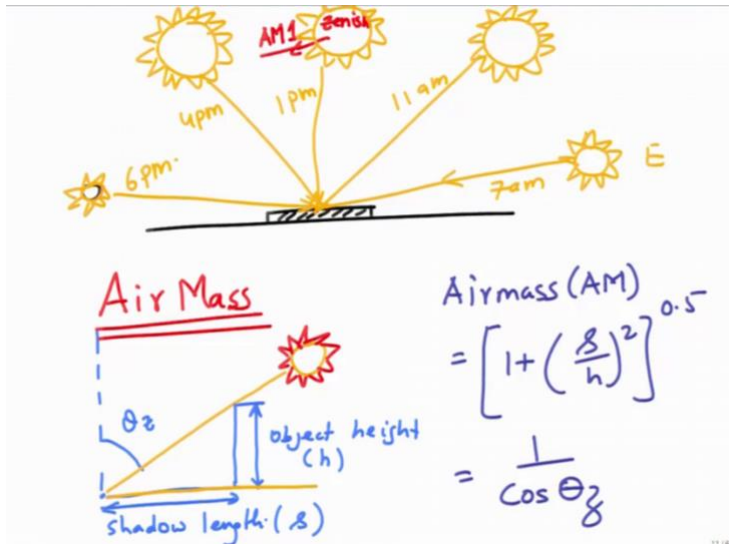 AM1 Zenish
4pm
1pm
11am
6pm.
7am
E
Air Mass
θz
object height
(h)
shadow length (s)
Airmass (AM)
= [1+(s/h)²]^0.5
= 1/Cos θz